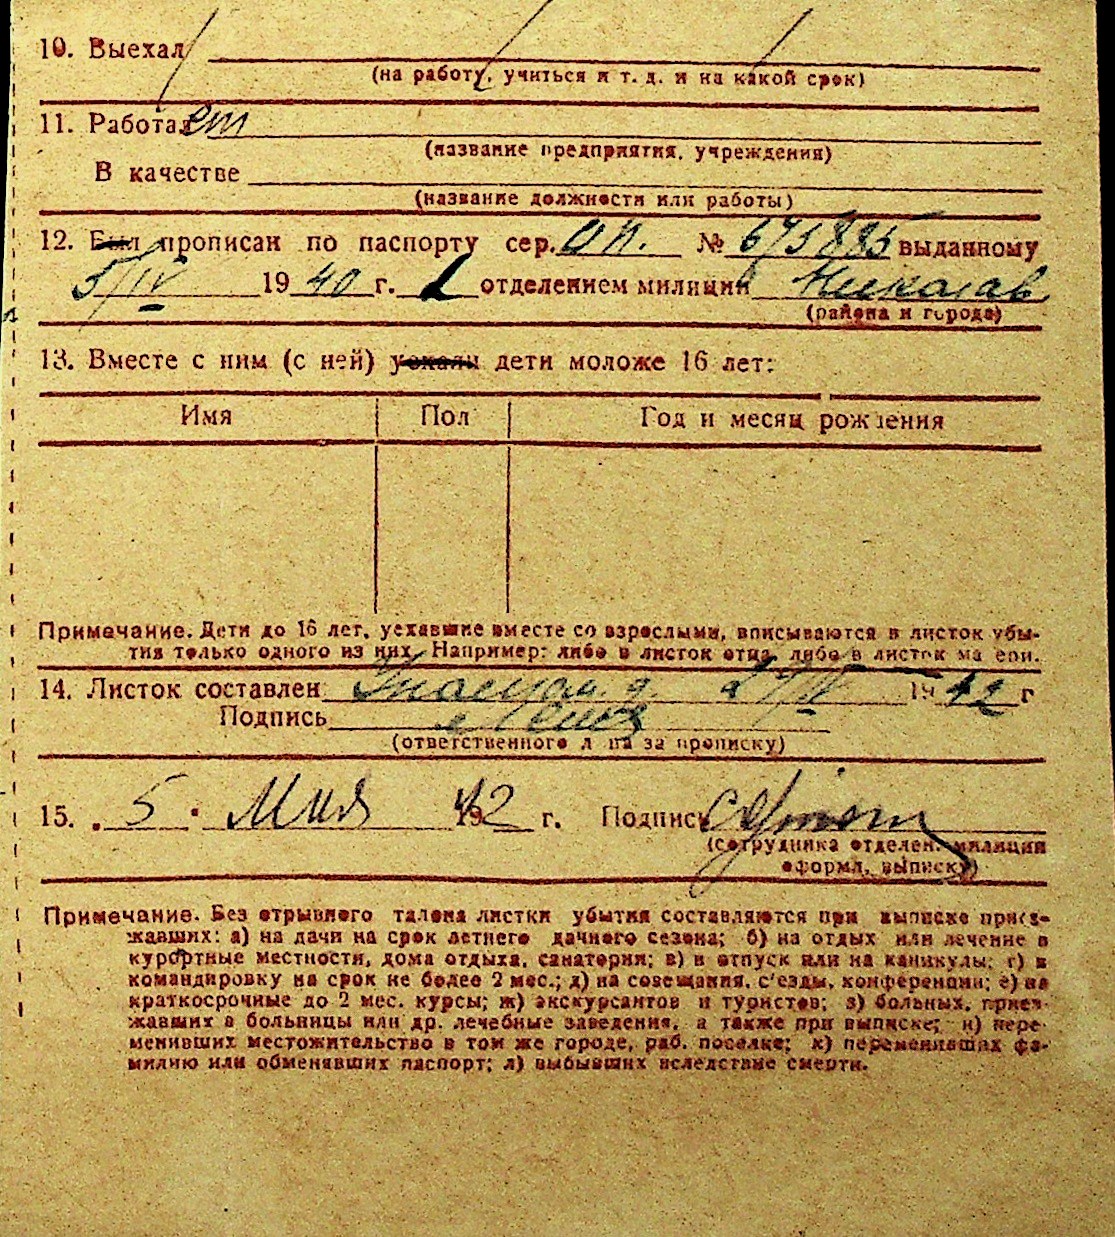 10. Выехал
(на работу, учиться и т. д. и на какой срок)
11. Работает
(название предприятия, учреждения)
В качестве
(название должности или работы)
12. Был прописан по паспорту сер. ОП. № 675885 выданному
5/IV 1940 г. 1 отделением милиции Николаев
(района и города)
13. Вместе с ним (с ней) уехали дети моложе 16 лет:
Имя Пол Год и месяц рождения
Примечание. Дети до 16 лет, уехавшие вместе со взрослыми, вписываются в листок убы-
тия только одного из них. Например: либо в листок отца, либо в листок матери.
14. Листок составлен 1942 г
Подпись
(ответственного лица за прописку)
15. „5" Мая 1942 г. Подпись
(сотрудника отделен. милиции
оформл. выписку)
Примечание. Без отрывного талона листки убытия составляются при выписке приез-
жавших: а) на дачи на срок летнего дачного сезона; б) на отдых или лечение в
курортные местности, дома отдыха, санатории; в) в отпуск или на каникулы; г) в
командировку на срок не более 2 мес.; д) на совещания, с'езды, конференции; е) на
краткосрочные до 2 мес. курсы; ж) экскурсантов и туристов; з) больных, приез-
жавших в больницы или др. лечебные заведения, а также при выписке; и) пере-
менивших местожительство в том же городе, раб. поселке; к) переменивших фа-
милию или обменявших паспорт; л) выбывших вследствие смерти.